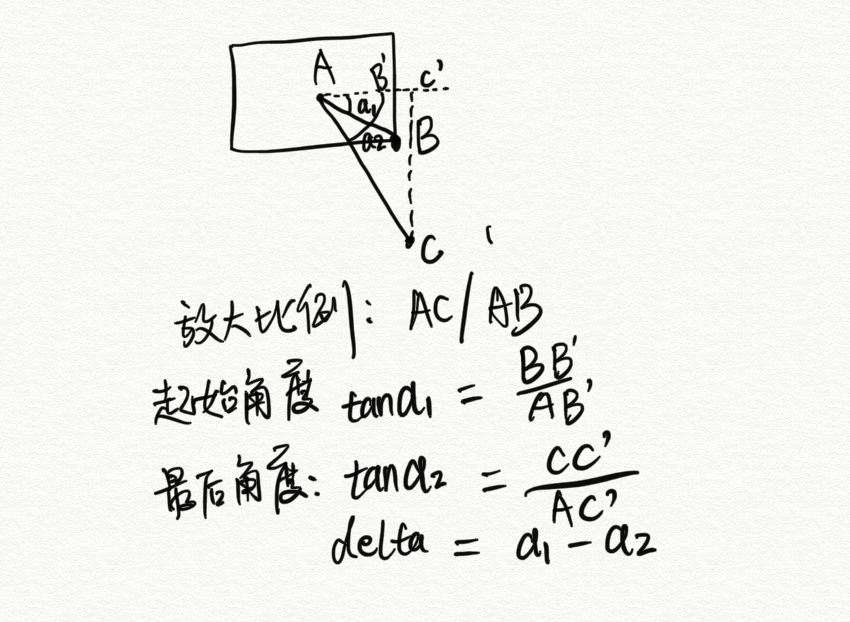 A B' C'
a₁
a₂ B
C
放大比例: AC/AB
起始角度 tanα₁ = BB'/AB'
最后角度: tanα₂ = CC'/AC'
delta = α₁ - α₂